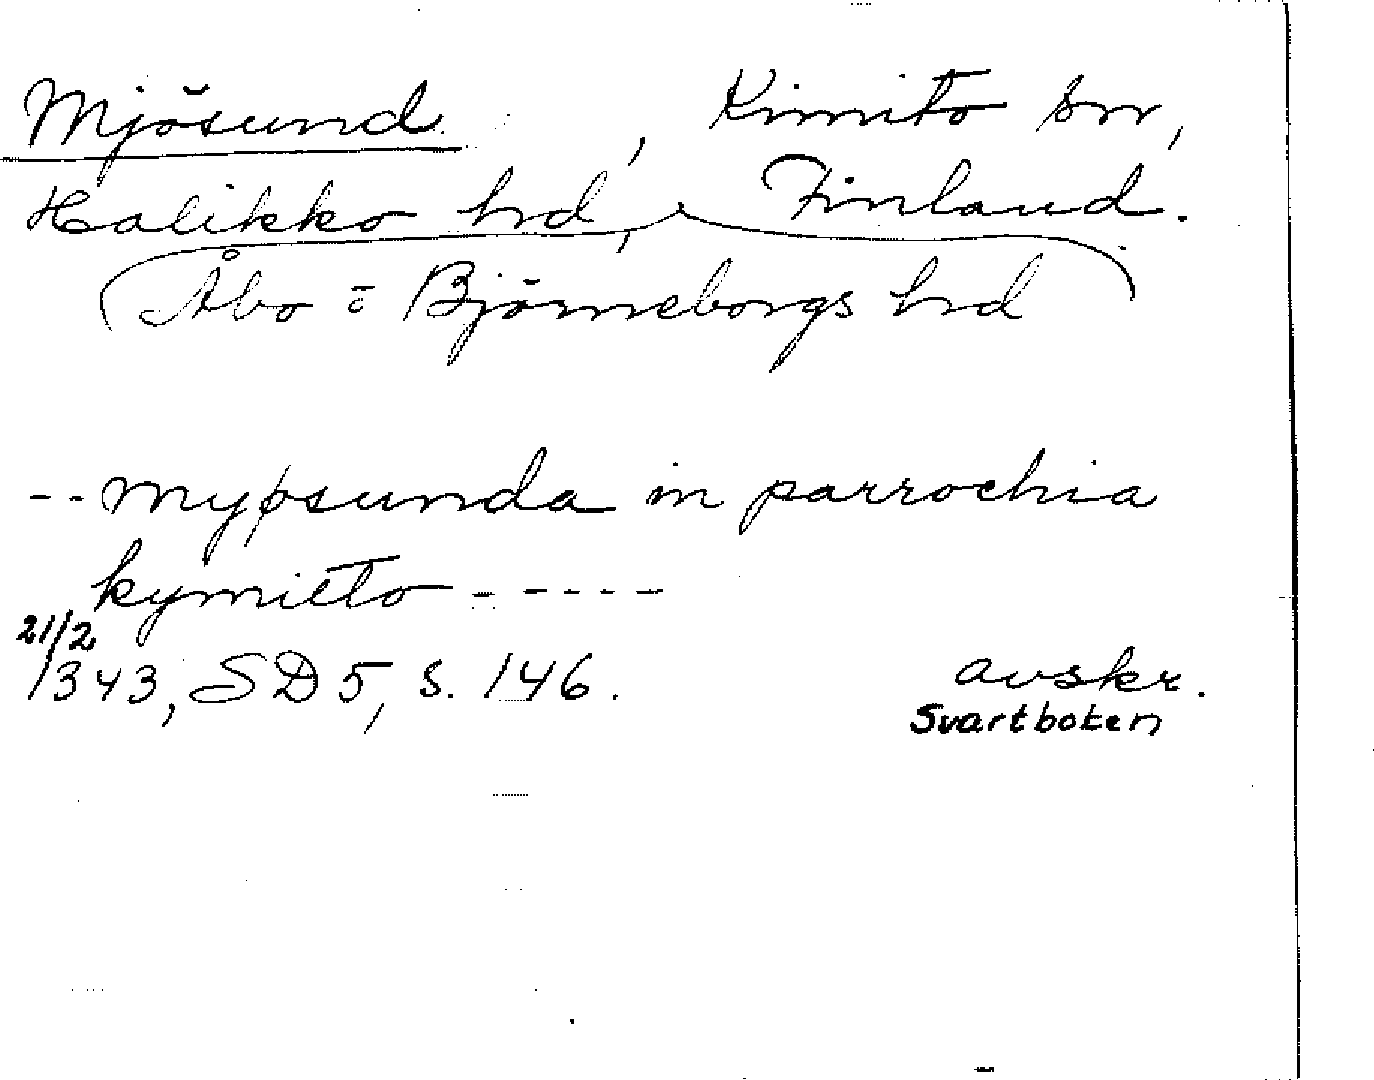 Mjösund, Kimito sn,
Halikko hrd, Finland.
(Åbo o Björneborgs hrd)
-- myøsunda in parrochia
kymitto - - - - -
21/2
1343, SD 5, s. 146. avskr.
Svartboken